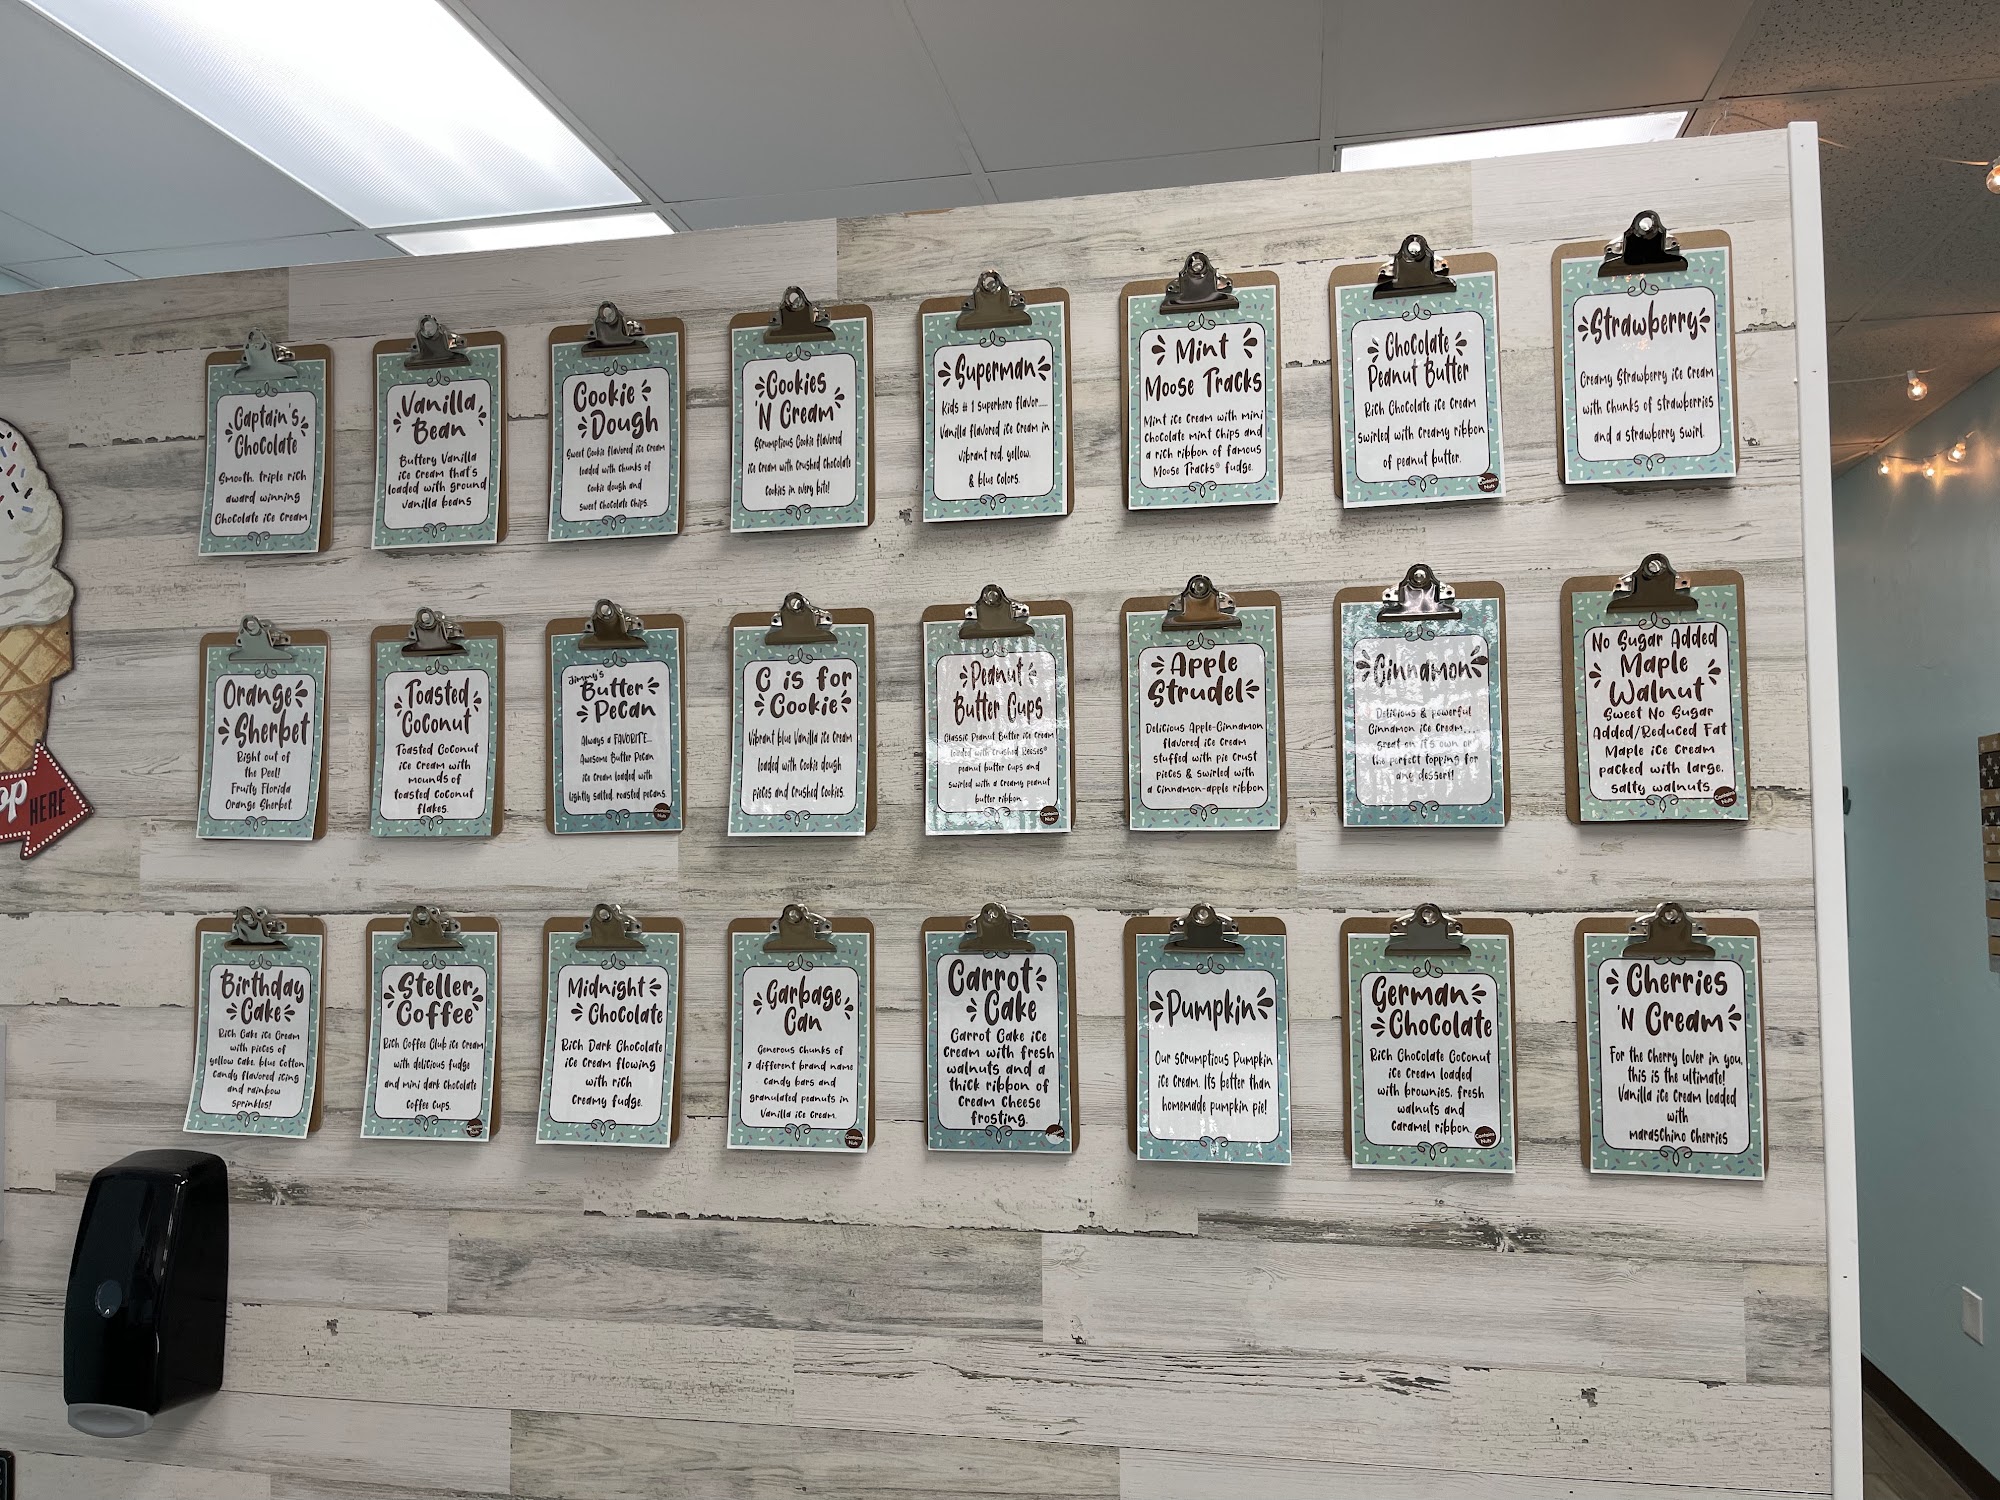 Captain's
Chocolate
Smooth, triple rich
award winning
Chocolate ice cream
Vanilla
Bean
Buttery Vanilla
ice cream that's
loaded with ground
vanilla beans
Cookie
Dough
Sweet Cookie flavored ice cream
loaded with chunks of
Cookie dough and
sweet chocolate chips.
Cookies
'N Cream
Scrumptious Cookie flavored
ice cream with crushed chocolate
Cookies in every bite!
Superman
Kids # 1 superhero flavor....
Vanilla flavored ice cream in
vibrant red, yellow,
& blue colors.
Mint
Moose Tracks
Mint ice cream with mini
chocolate mint chips and
a rich ribbon of famous
Moose Tracks® fudge.
Chocolate
Peanut Butter
Rich Chocolate ice cream
swirled with creamy ribbon
of peanut butter.
Contains
Nuts
Strawberry
Creamy Strawberry ice cream
with chunks of strawberries
and a strawberry swirl.
Orange
Sherbet
Right out of
the Peel!
Fruity Florida
Orange Sherbet
Toasted
Coconut
Toasted Coconut
ice cream with
mounds of
toasted coconut
flakes.
Jimmy's
Butter
Pecan
Always a FAVORITE...
Awesome Butter Pecan
ice cream loaded with
lightly salted, roasted pecans.
Contains
Nuts
C is for
Cookie
Vibrant blue Vanilla ice cream
loaded with cookie dough
pieces and crushed cookies.
Peanut
Butter Cups
Classic Peanut Butter ice cream
loaded with crushed Reeses®
peanut butter cups and
swirled with a creamy peanut
butter ribbon
Contains
Nuts
Apple
Strudel
Delicious Apple-Cinnamon
flavored ice cream
stuffed with pie crust
pieces & swirled with
a cinnamon-apple ribbon
Cinnamon
Delicious & powerful
Cinnamon ice cream....
great on it's own or
the perfect topping for
any dessert!
No Sugar Added
Maple
Walnut
Sweet No Sugar
Added/Reduced Fat
Maple ice cream
packed with large,
salty walnuts.
Contains
Nuts
op
HERE
Birthday
Cake
Rich Cake ice cream
with pieces of
yellow cake, blue cotton
candy flavored icing
and rainbow
sprinkles!
Steller
Coffee
Rich Coffee Club ice cream
with delicious fudge
and mini dark chocolate
coffee cups.
Contains
Nuts
Midnight
Chocolate
Rich Dark Chocolate
ice cream flowing
with rich
creamy fudge.
Garbage
Can
Generous chunks of
7 different brand name
candy bars and
granulated peanuts in
Vanilla ice cream.
Contains
Nuts
Carrot
Cake
Carrot Cake ice
cream with fresh
walnuts and a
thick ribbon of
cream cheese
frosting.
Pumpkin
Our scrumptious Pumpkin
ice cream. Its better than
homemade pumpkin pie!
German
Chocolate
Rich Chocolate Coconut
ice cream loaded
with brownies, fresh
walnuts and
Caramel ribbon.
Contains
Nuts
Cherries
'N Cream
For the cherry lover in you,
this is the ultimate!
Vanilla ice cream loaded
with
maraschino cherries